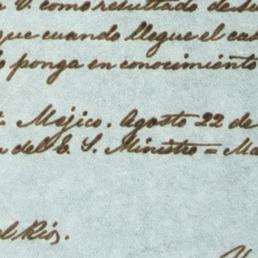 V. como resultado de
que cuando llegue el
ponga en conocimiento
Mejico. Agosto 22 de
del E. S. Ministro = Ma
del Rios.